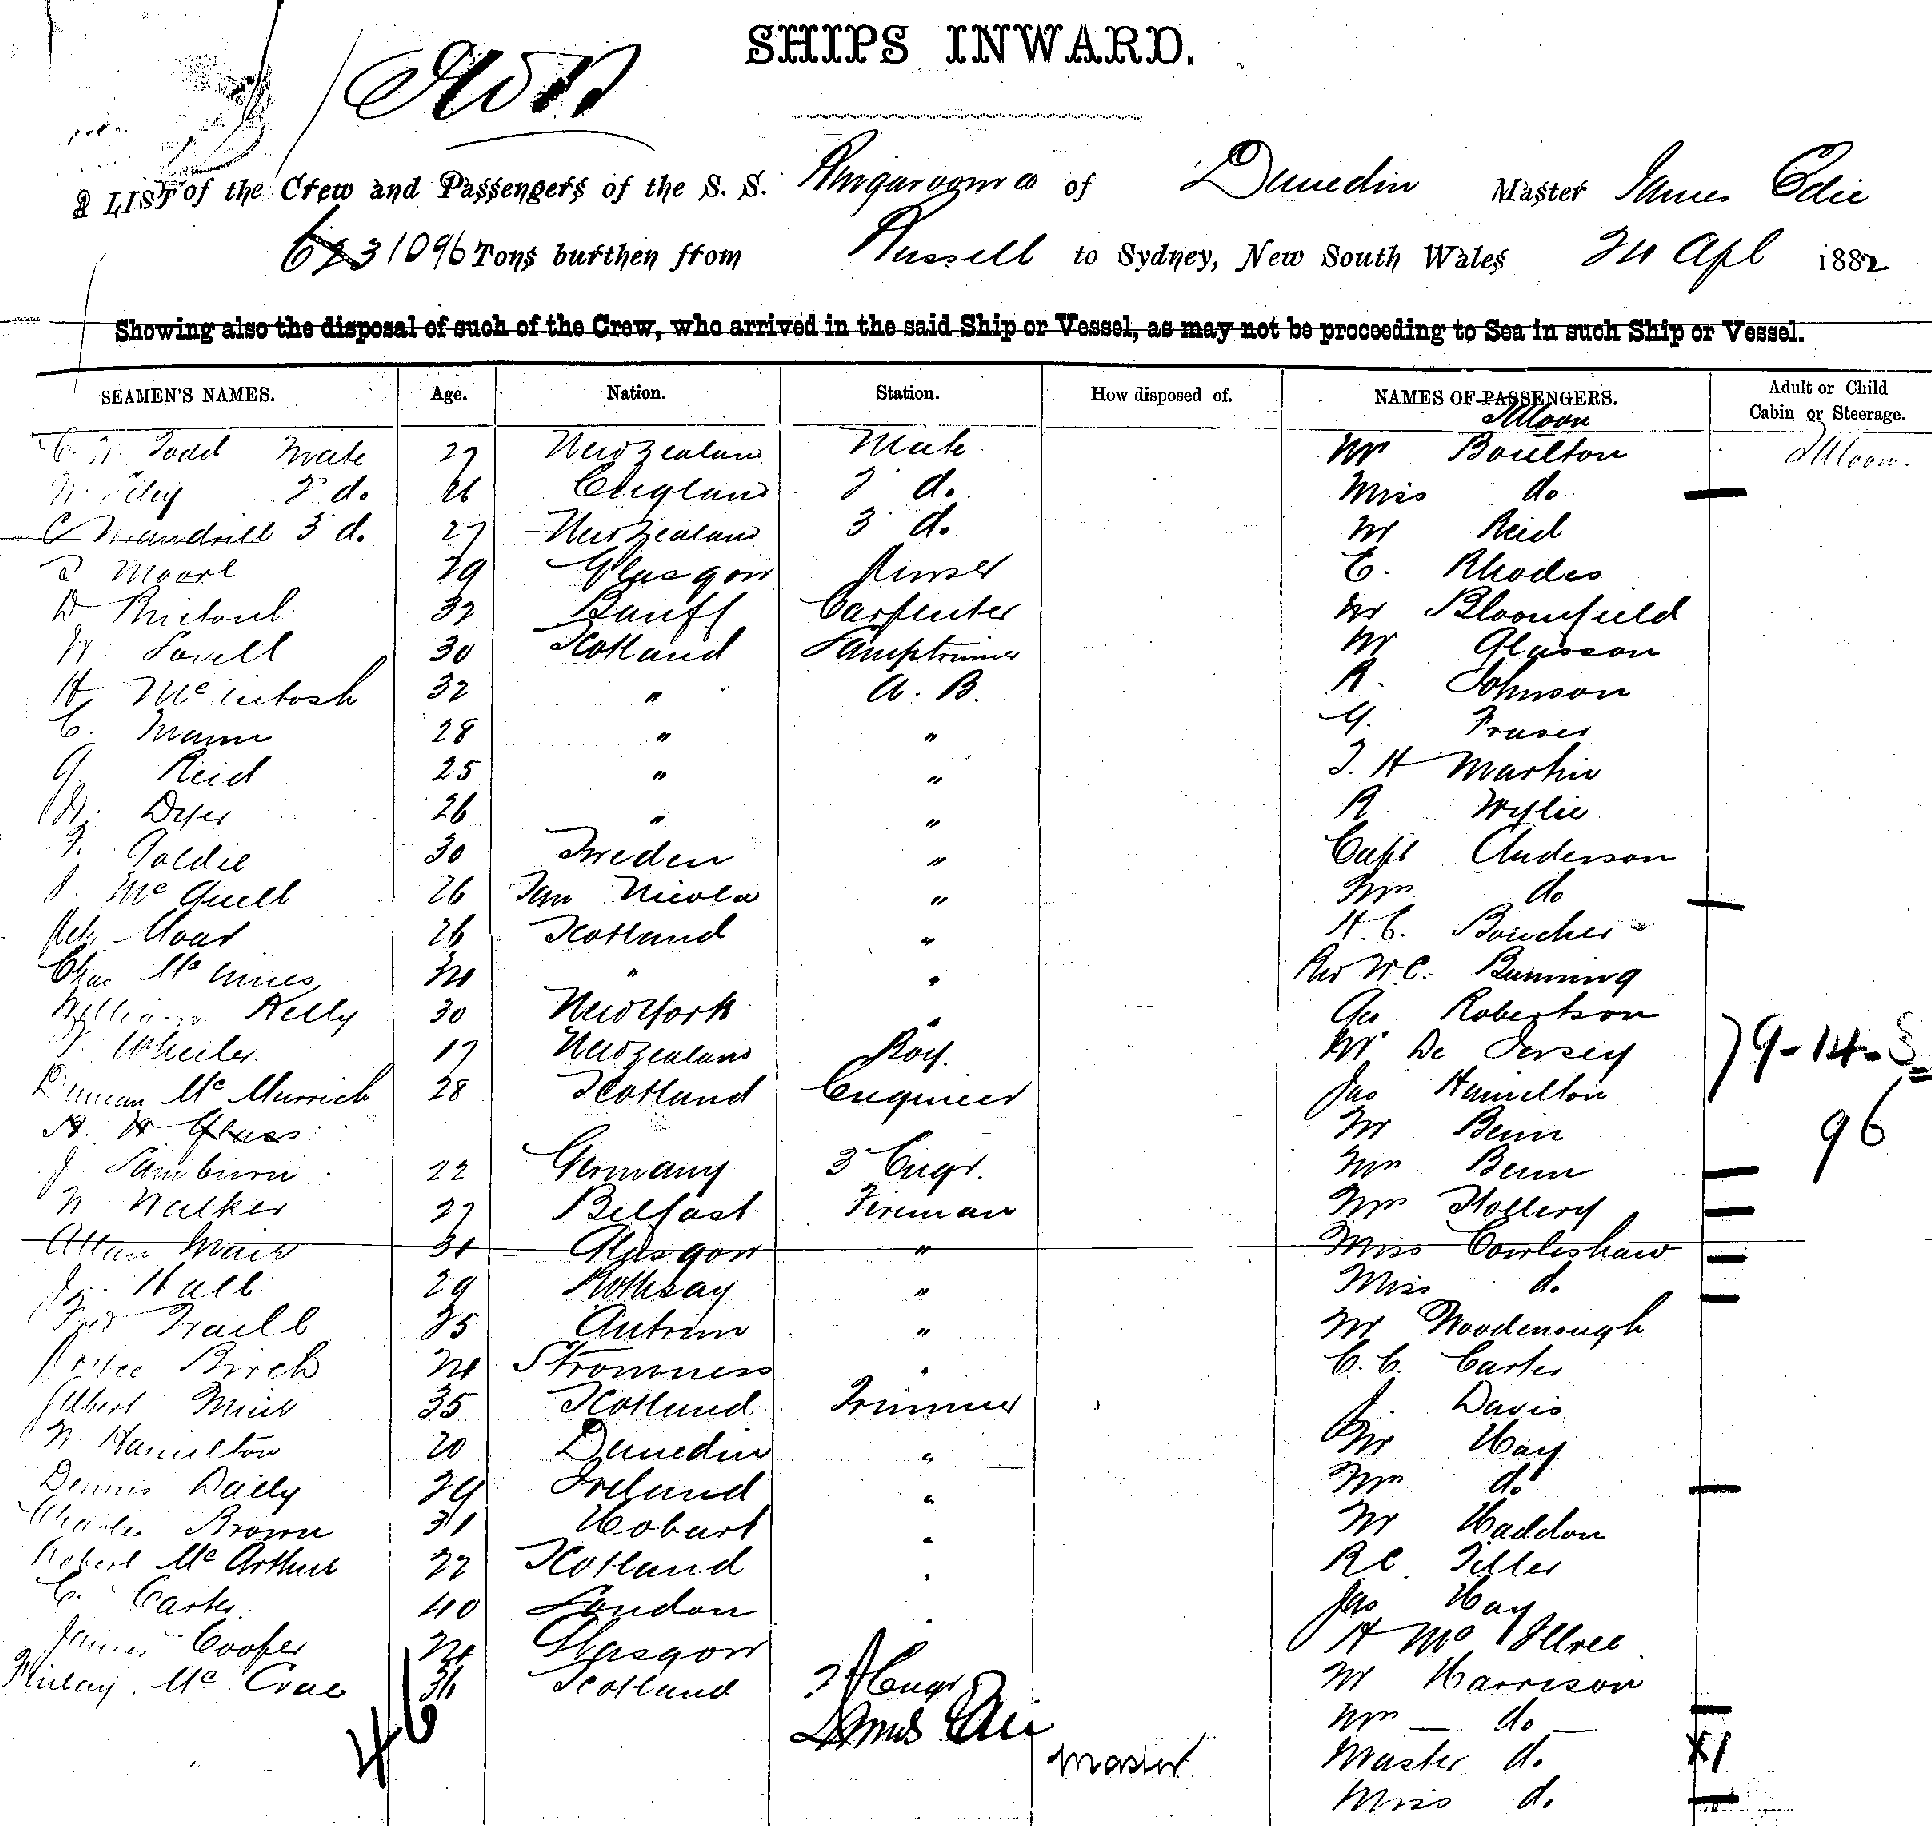 SHIPS INWARD.
A LIST of the Crew and Passengers of the S. S. Ringarooma of Dunedin Master James Edie
623 1096 Tons burthen from Russell to Sydney, New South Wales 24 Apl 1882
Showing also the disposal of such of the Crew, who arrived in the said Ship or Vessel, as may not be proceeding to Sea in such Ship or Vessel.
SEAMEN'S NAMES. Age. Nation. Station. How disposed of. NAMES OF PASSENGERS. Adult or Child
Cabin or Steerage.
Saloon
C. W Todd Mate 27 New Zealand Mate Mr Boulton Saloon.
2 do. 26 England 2 do. Miss do
C Mandrill 3 do. 27 New Zealand 3 do. Mr Reid
Moore 29 Glasgow Purser E. Rhodes
D 32 Banff Carpenter Mr Bloomfield
W Lovell 30 Scotland Lamptrimmer Mr Glasson
A McIntosh 32 " A. B. R. Johnson
C. Mann 28 " " G. Fraser
G Reid 25 " " T. H Martin
W. Dyer 26 " " R Wylie
F. Goldie 30 Sweden " Capt Anderson
J. McQuell 26 San Nicola " Mrs do
Moar 26 Scotland " H. C. Boucher
Chas McInnes 24 " " Rev W. C. Bunning
William Kelly 30 New York " Geo Robertson
T. Wheeler 17 New Zealand Boy. Mr De Jersey 79-14-3
Duncan McMurrich 28 Scotland Engineer Jas Hamilton
A. H Glass Mr Benn 96
J. Samburn 22 Germany 3 Engr. Mrs Benn
W Walker 27 Belfast Fireman Mrs Hollery
Allan Mair 31 Glasgow " Miss Cowlishaw
J. Hall 29 Rothsay " Miss do
Traill 25 Antrim " Mr Woodenough
Birch 24 Stromness " C. C. Carter
Gilbert 35 Scotland Trimmer J. Davis
W Hamilton 20 Dunedin " Mr Hay
Dennis Daily 29 Ireland " Mrs do
Charles Brown 31 Hobart " Mr Haddon
Robert McArthur 22 Scotland " R C Tiller
C. Carter 40 London " Jas Hay
James Cooper 24 Glasgow A McIllree
Finlay McCrae 36 Scotland 2 Engr Mr Harrison
46 James Edie Mrs do
Master Master do. X1
Miss do.